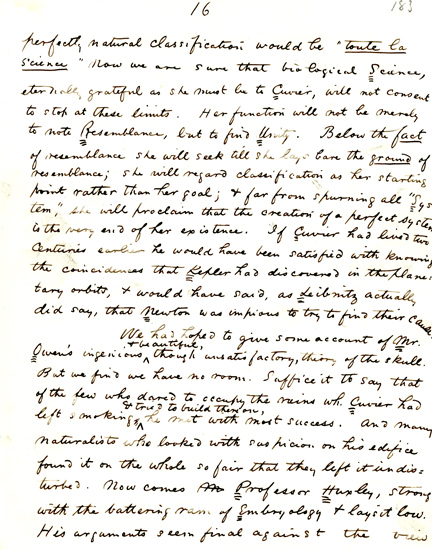 16
183
perfectly natural classification would be "toute la
science." Now we are sure that biological Science,
eternally grateful as she must be to Cuvier, will not consent
to stop at these limits. Her function will not be merely
to note Resemblance, but to find Unity. Below the fact
of resemblance she will seek till she lays bare the ground of
resemblance; she will regard classification as her starting
point rather than her goal; & far from spurning all "Sys
tem," she will proclaim that the creation of a perfect system
is the very end of her existence. If Cuvier had lived two
centuries earlier he would have been satisfied with knowing
the coincidences that Kepler had discovered in the plane-
tary orbits, & would have said, as Leibnitz actually
did say, that Newton was impious to try to find their cause.
We had hoped to give some account of Mr.
& beautiful,
Owen's ingenious though unsatisfactory, theory of the skull.
But we find we have no room. Suffice it to say that
of the few who dared to occupy the ruins wh. Cuvier had
& tried to build thereon,
left smoking, he met with most success. And many
naturalists who looked with suspicion on his edifice
found it on the whole so fair that they left it undis-
turbed. Now comes Professor Huxley, strong
with the battering ram of Embryology & lays it low.
His arguments seem final against the view